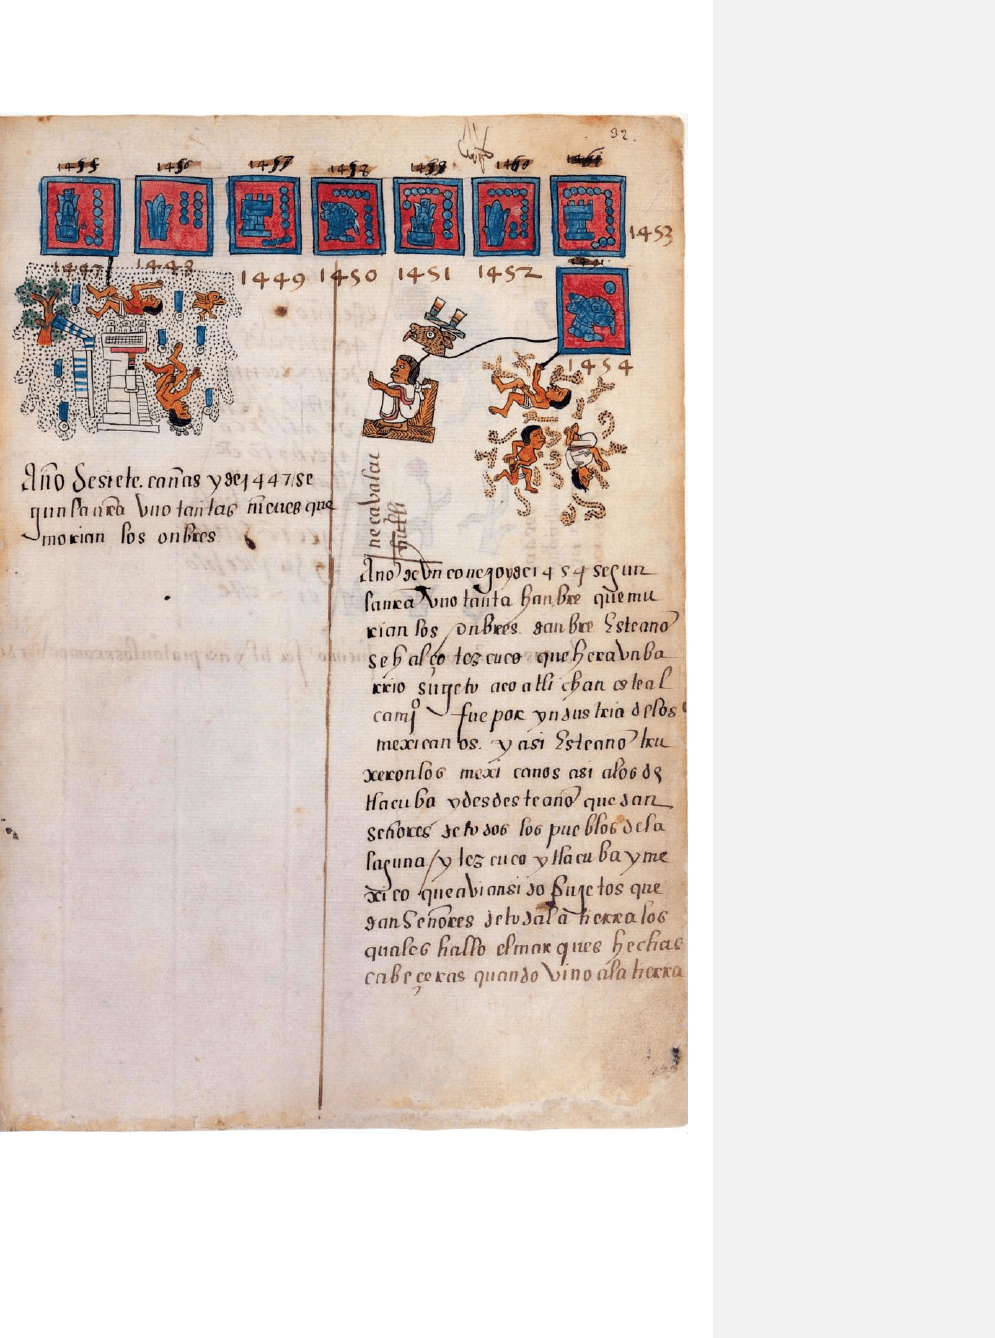 32.
1455 1456 1457 1458 1459 1460 1461
1447 1448 1449 1450 1451 1452 1453
1454
Año de siete cañas y de 1447 se
gun la nra vuo tantas nieues que
morian los onbres
neçavalcoi
Año de vn conejo y de 1454 segun
la nra vuo tanta hanbre que mu
rian los onbres danbre Este año
se halço tezcuco que hera vn ba
rrio sugeto a coatlichan este al
çamjo fue por yndustria de los
mexicanos. y asi Este año tru
xeron los mexicanos asi a los de
tlacuba y desde este año quedan
señores de todos los pueblos de la
laguna / y tezcuco y tlacuba y me
xico que avian sido sugetos que
dan Señores de toda la tierra los
quales hallo el marques hechas
cabeçeras quando vino a la tierra